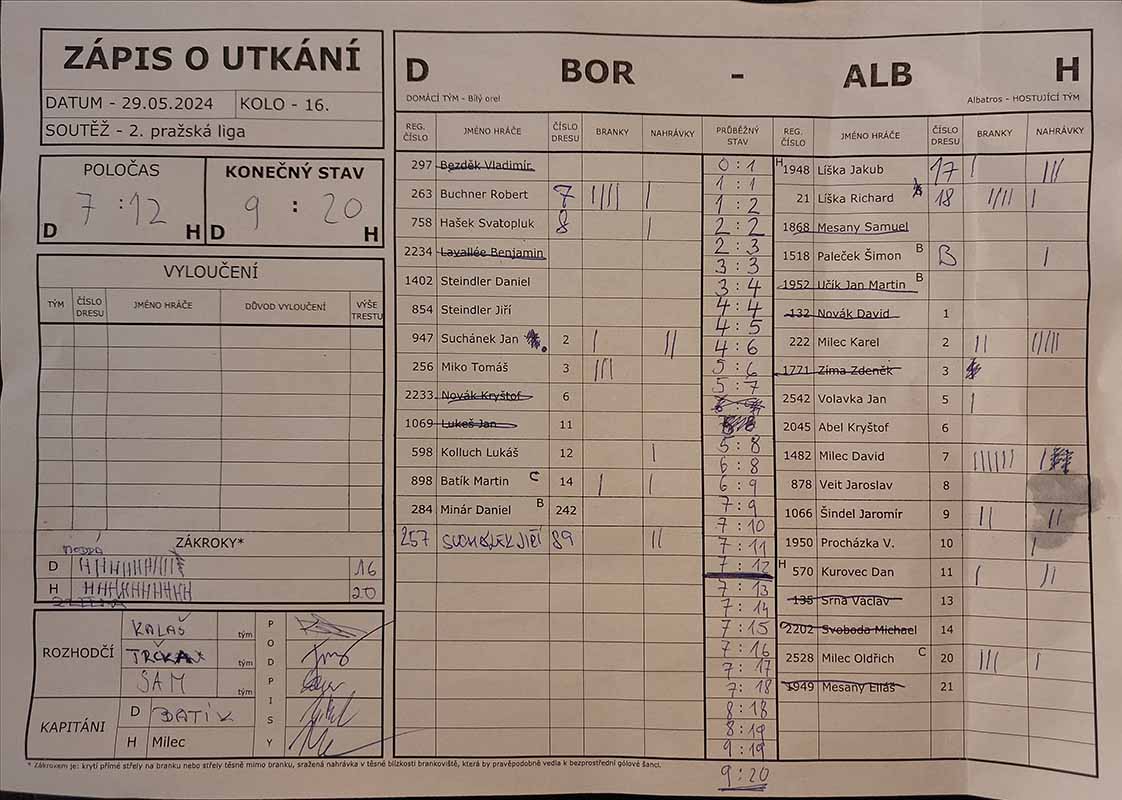 ZÁPIS O UTKÁNÍ
DATUM - 29.05.2024 KOLO - 16.
SOUTĚŽ - 2. pražská liga
POLOČAS KONEČNÝ STAV
7 : 12 9 : 20
D H D H
VYLOUČENÍ
TÝM ČÍSLO DRESU JMÉNO HRÁČE DŮVOD VYLOUČENÍ VÝŠE TRESTU
ZÁKROKY*
D 16
H 20
ROZHODČÍ KALAŠ tým
TRČKA tým
SAM tým
PODPISY
KAPITÁNI D BATÍK
H Milec
D BOR - ALB H
DOMÁCÍ TÝM - Bílý orel Albatros - HOSTUJÍCÍ TÝM
REG. ČÍSLO JMÉNO HRÁČE ČÍSLO DRESU BRANKY NAHRÁVKY
297 Bezděk Vladimír
263 Buchner Robert 7 |||| |
758 Hašek Svatopluk 8 |
2234 Lavallée Benjamin
1402 Steindler Daniel
854 Steindler Jiří
947 Suchánek Jan 2 | ||
256 Miko Tomáš 3 |||
2233 Novák Kryštof 6
1069 Lukeš Jan 11
598 Kolluch Lukáš 12 |
898 Batík Martin C 14 | |
284 Minár Daniel B 242
257 SUCHÁNEK JIŘÍ 89 ||
PRŮBĚŽNÝ STAV
0 : 1
1 : 1
1 : 2
2 : 2
2 : 3
3 : 3
3 : 4
4 : 4
4 : 5
4 : 6
5 : 6
5 : 7
5 : 8
6 : 8
6 : 9
7 : 9
7 : 10
7 : 11
7 : 12
7 : 13
7 : 14
7 : 15
7 : 16
7 : 17
7 : 18
8 : 18
8 : 19
9 : 19
9 : 20
REG. ČÍSLO JMÉNO HRÁČE ČÍSLO DRESU BRANKY NAHRÁVKY
H 1948 Líška Jakub 17 | |||
21 Líška Richard 18 ||||| |
1868 Mesany Samuel
1518 Paleček Šimon B B |
1952 Učík Jan Martin B
132 Novák David 1
222 Milec Karel 2 || |||||
1771 Zíma Zdeněk 3
2542 Volavka Jan 5 |
2045 Abel Kryštof 6
1482 Milec David 7 |||||| |
878 Veit Jaroslav 8
1066 Šindel Jaromír 9 || ||
1950 Procházka V. 10 |
H 570 Kurovec Dan 11 | ||
135 Srna Václav 13
2202 Svoboda Michael 14
2528 Milec Oldřich C 20 ||| |
1949 Mesany Eliáš 21
* Zákrokem je: krytí přímé střely na branku nebo střely těsně mimo branku, sražená nahrávka v těsné blízkosti brankoviště, která by pravěpodobně vedla k bezprostřední gólové šanci.